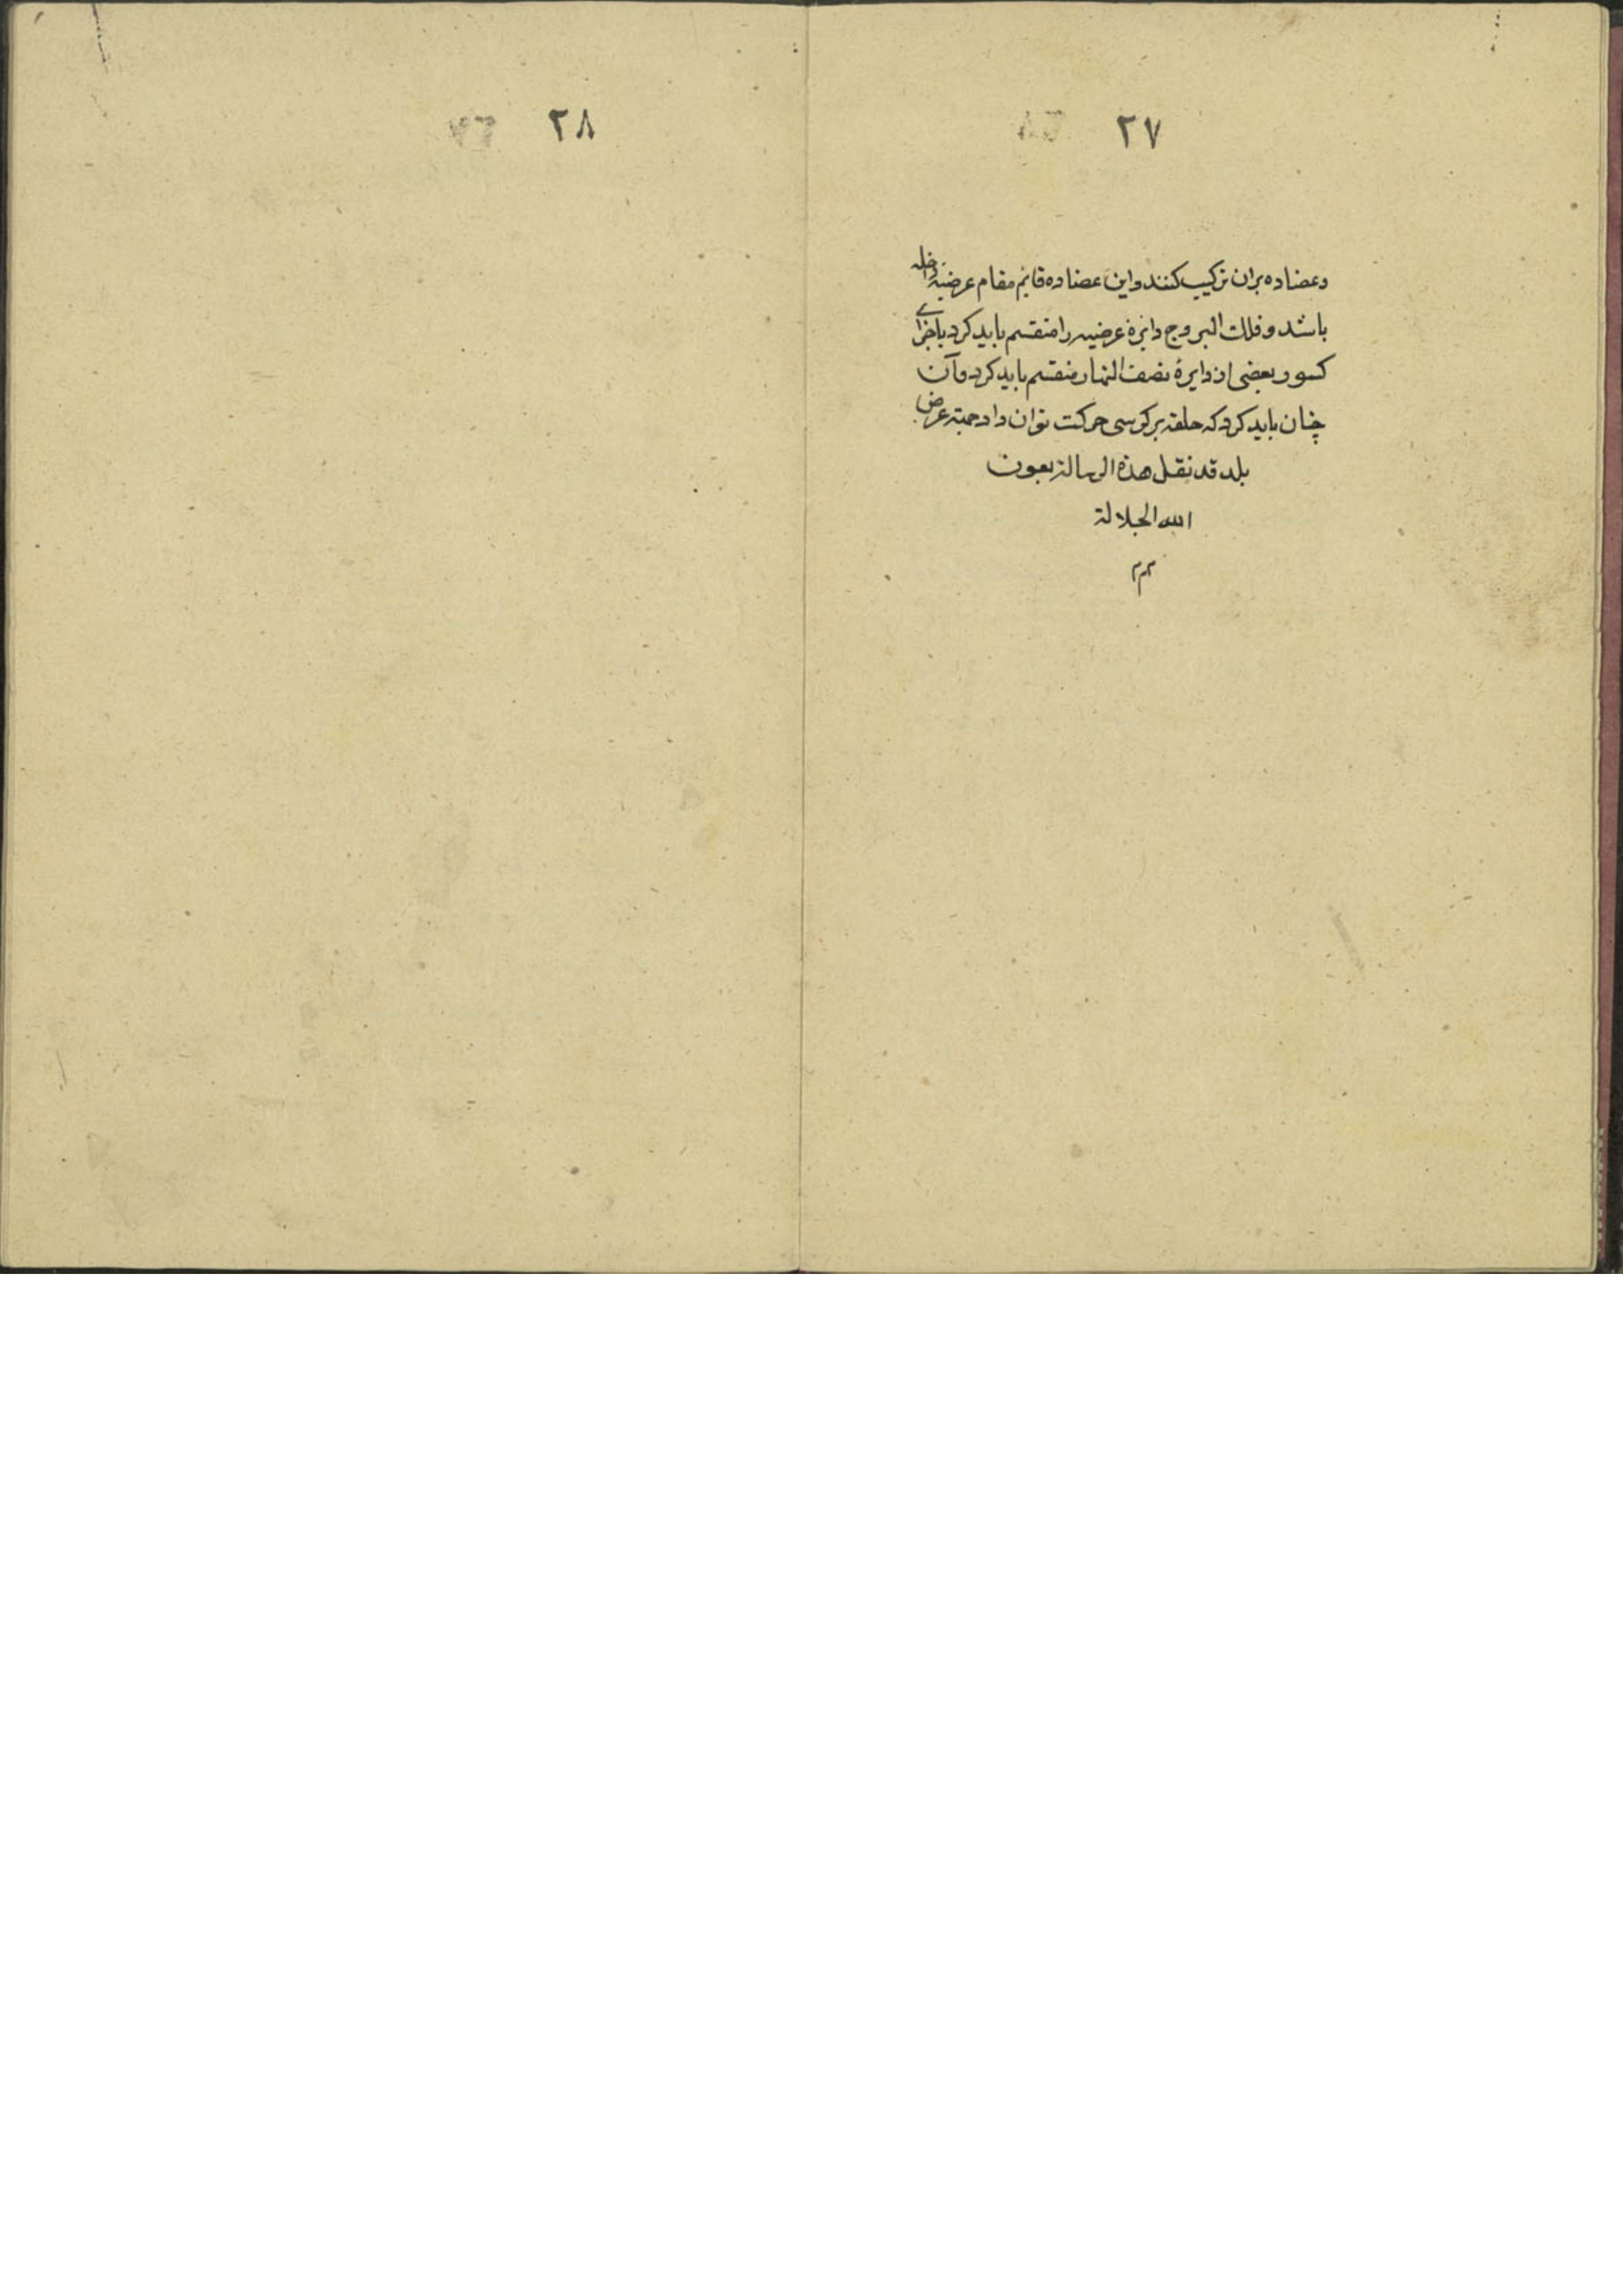 ٢٧
وعضاده بران تركيب كنند واين عضاده قايم مقام عرضيه داخله
باشد و فلك البروج دايرۀ عرضيه را منقسم بايد كرد باجزاى
كسور بعضى از دايرۀ نصف النهار منقسم بايد كرد و آن
چنان بايد كرد كه حلقه بر كرسى حركت توان داد جهة عرض
بلد قد نقل هذه الرسالة بعون
الله الجلالة
٢٨